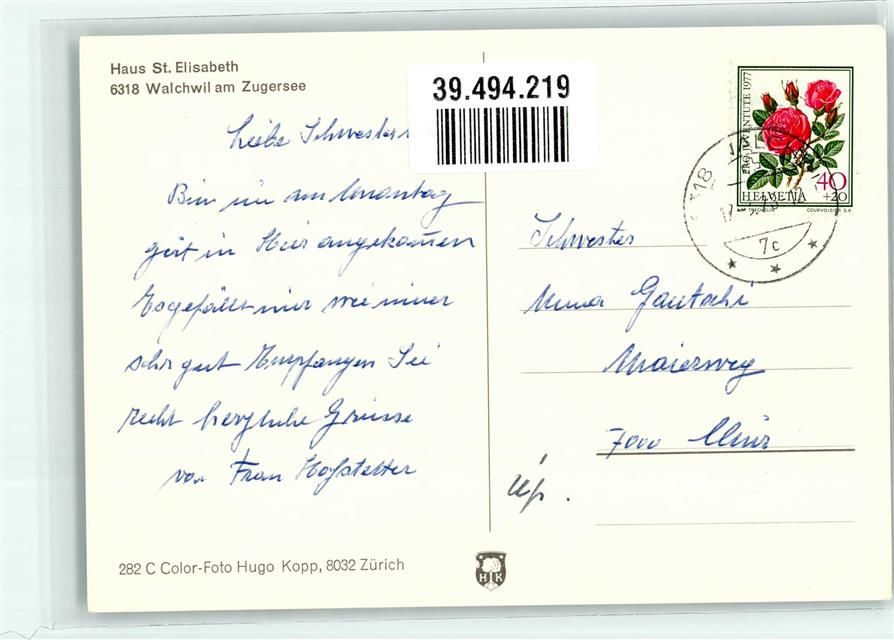 Haus St. Elisabeth
6318 Walchwil am Zugersee
39.494.219
PRO JUVENTUTE 1977
40
+20
HELVETIA
COURVOISIER S.A.
7c
Liebe Schwester
Bin nu am Monantag
gut in Hier angekommen
Es gefällt mir wie imer
sehr gut Empfangen Sie
recht herzliche Grüsse
von Frau Hofstetter
Schwester
Gautschi
Maierweg
7000 Chur
282 C Color-Foto Hugo Kopp, 8032 Zürich
H K